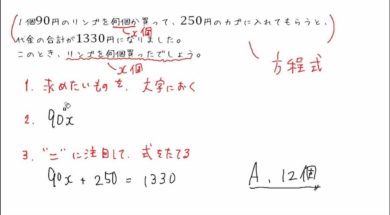 1個90円のリンゴを何個か買って、250円のカゴに入れてもらうと、
x個
代金の合計が1330円になりました。
このとき、リンゴを何個買ったでしょう。
x個
方程式
1. 求めたいものを、文字におく
2. 90x
3. "="に注目して、式をたてる
90x + 250 = 1330
A. 12個